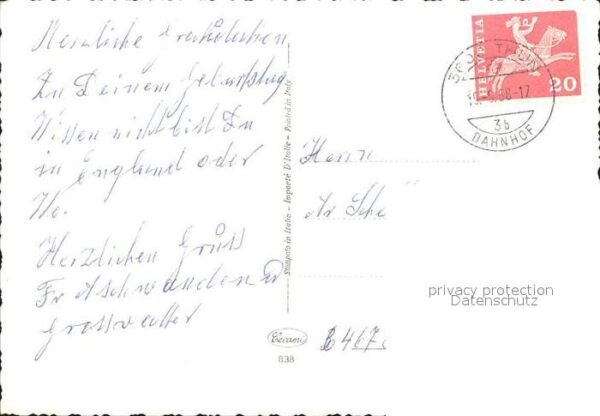 Herzliche Gratulation
Zu Deinem Geburtstag
Wissen nicht bist Du
in England oder
Wo.
Herzlichen Gruss
Fr Aschwanden
Grossvatter
Stampato in Italia - Importé D'Italie - Printed in Italy
Cecami
838
HELVETIA
20
THUN
68-17
3b
BAHNHOF
Herrn
privacy protection
Datenschutz